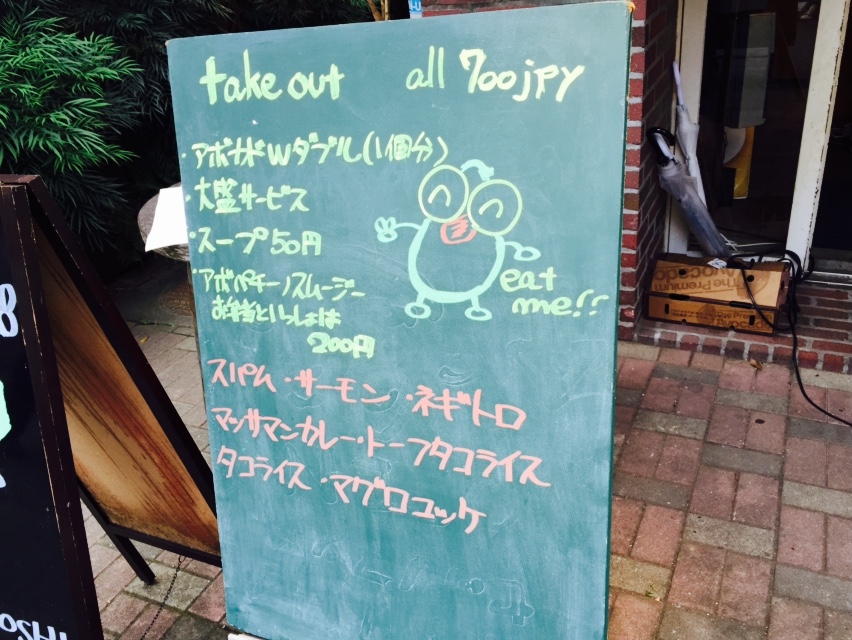 take out all 700jpy
・アボカドWダブル(1個分)
・大盛サービス
・スープ50円
・アボバナーノスムージー
お弁当といっしょは
200円
eat
me!!
スパム・サーモン・ネギトロ
マッサマンカレー・トーフタコライス
タコライス・マグロユッケ
8
The Premium
Avocado
OSHI